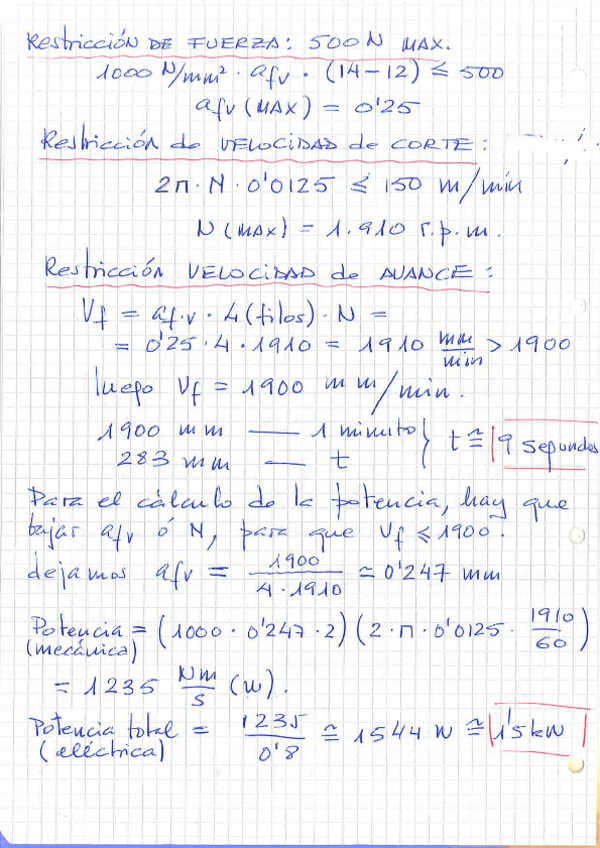 Restricción DE FUERZA: 500 N MAX.
1000 N/mm² · afv · (14-12) ≤ 500
afv (MAX) = 0'25
Restricción de VELOCIDAD de CORTE:
2π · N · 0'0125 ≤ 150 m/min
N (MAX) = 1.910 r.p.m.
Restricción VELOCIDAD de AVANCE:
Vf = af.v · 4 (filos) · N =
= 0'25 · 4 · 1910 = 1910 mm/min > 1900
luego Vf = 1900 mm/min.
1900 mm — 1 minuto
283 mm — t } t ≅ 9 segundos
Para el cálculo de la potencia, hay que
bajar afv ó N, para que Vf ≤ 1900.
dejamos afv = 1900/4·1910 ≃ 0'247 mm
Potencia = (1000 · 0'247 · 2) (2 · π · 0'0125 · 1910/60)
(mecánica)
= 1235 Nm/s (w).
Potencia total = 1235/0'8 ≅ 1544 W ≅ 1'5 kW
(eléctrica)